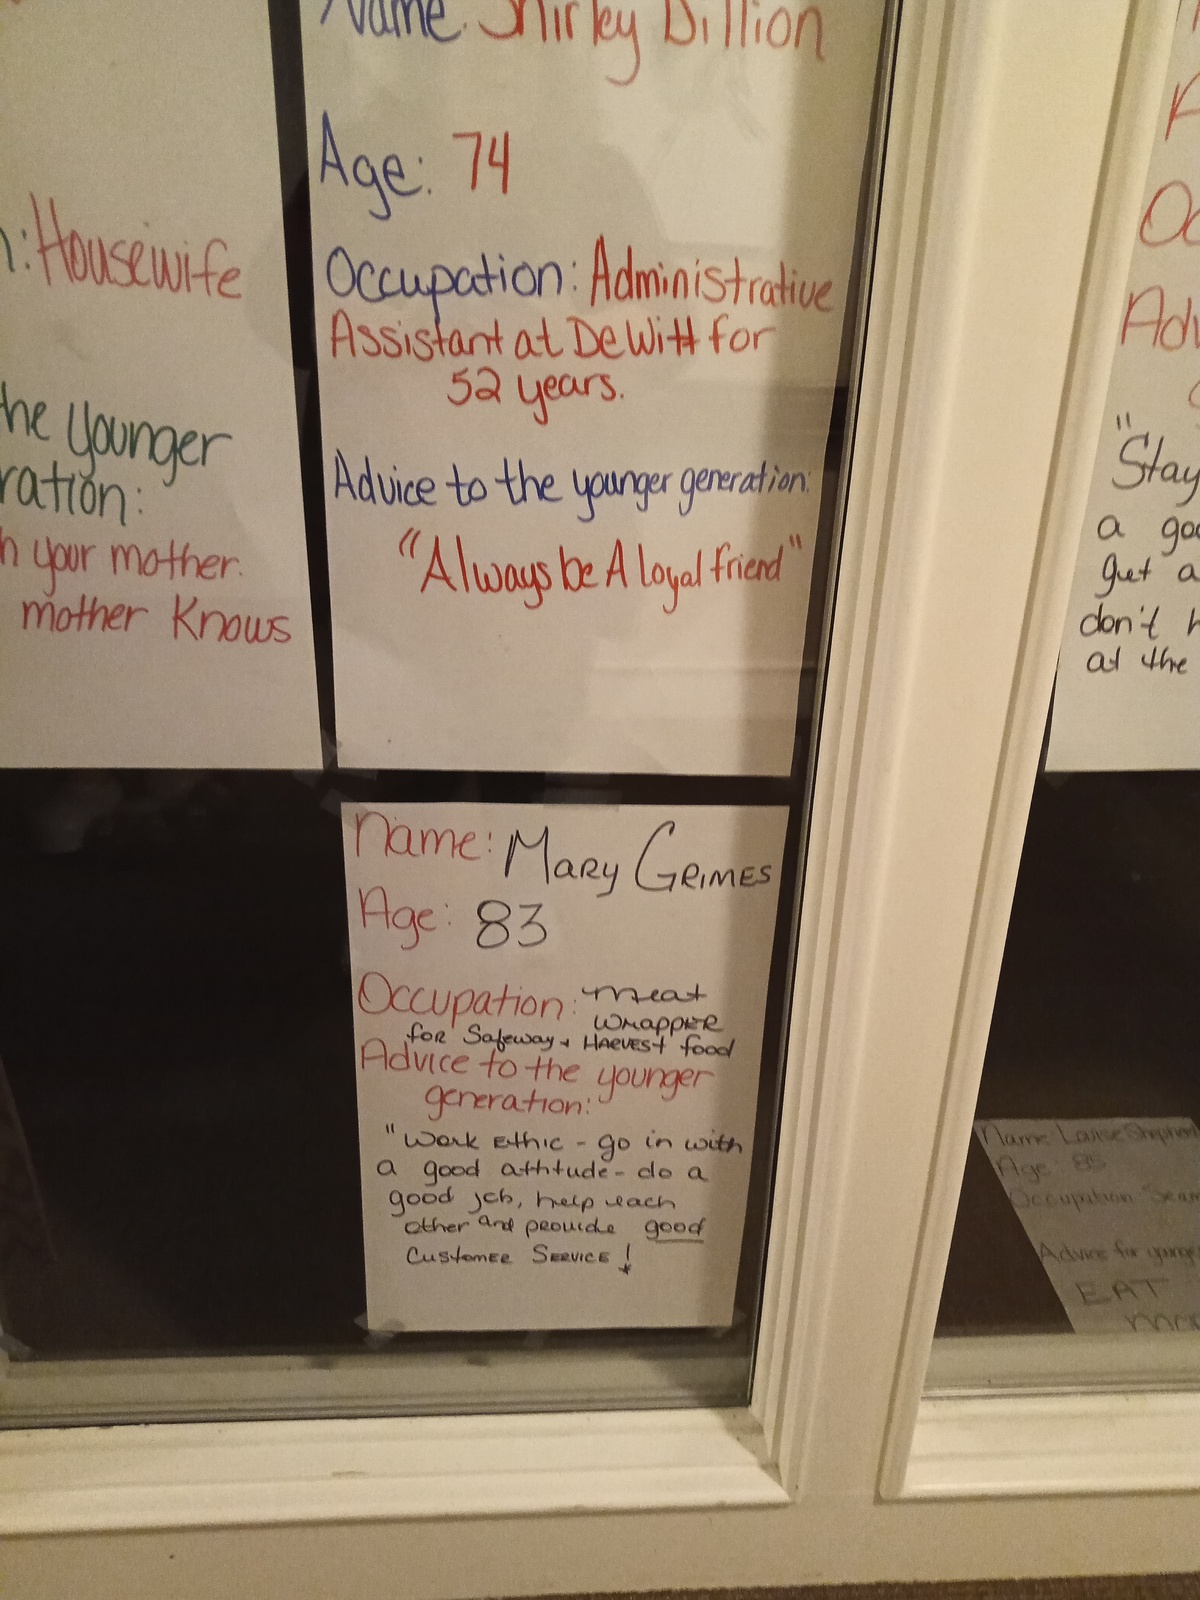 n: Housewife
the younger
ration:
h your mother.
mother Knows
Name: Shirley Dillion
Age: 74
Occupation: Administrative
Assistant at DeWitt for
52 years.
Advice to the younger generation:
"Always be A loyal friend"
Name: MARY GRIMES
Age: 83
Occupation: meat
WRAPPER
for Safeway + HARVEST food
Advice to the younger
generation:
"Work Ethic - go in with
a good attitude - do a
good job, help each
other and provide good
Customer Service!
Oc
Adv
"Stay
a goo
get a
don't h
at the
Name: Louise
Age: 85
Occupation: Sear
Advice for young
EAT